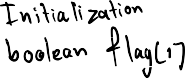 Initialization
boolean flag[;]